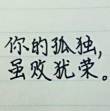 你的孤独，
虽败犹荣。